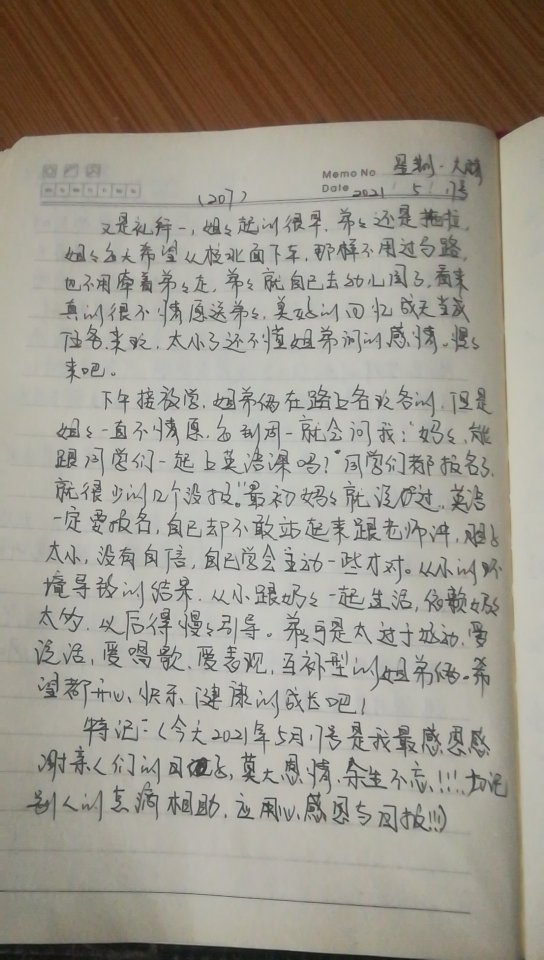 Memo No 星期一·大晴
Date 2021 5 17号
(207)
又是礼拜一,姐姐起的很早,弟弟还是拖拉,
姐姐每天希望从校北面下车,那样不用过马路,
也不用牵着弟弟走,弟弟就自己去幼儿园了,看来
真的很不情愿送弟弟,美好的回忆成天当成
任务来玩,太小了还不懂姐弟间的感情。慢慢
来吧。
下午接放学,姐弟俩在路上各玩各的,但是
姐姐一直不情愿,每到周一就会问我:"妈妈,能
跟同学们一起上英语课吗?"同学们都报名了,
就很少的几个没报。"最初妈妈就说过,英语
一定要报名,自己却不敢站起来跟老师讲,胆子
太小,没有自信,自己学会主动一些才对。从小的环
境导致的结果,从小跟妈妈一起生活,依赖妈妈
太多,以后得慢慢引导。弟弟可是太过于好动,爱
说话,爱唱歌,爱表现,互补型的姐弟俩。希
望都开心、快乐、健康的成长吧!
特记:(今天2021年5月17号是我最感恩感
谢亲人们的日子,莫大恩情,余生不忘!!!切记
别人的点滴相助,应用心感恩与回报!!!)